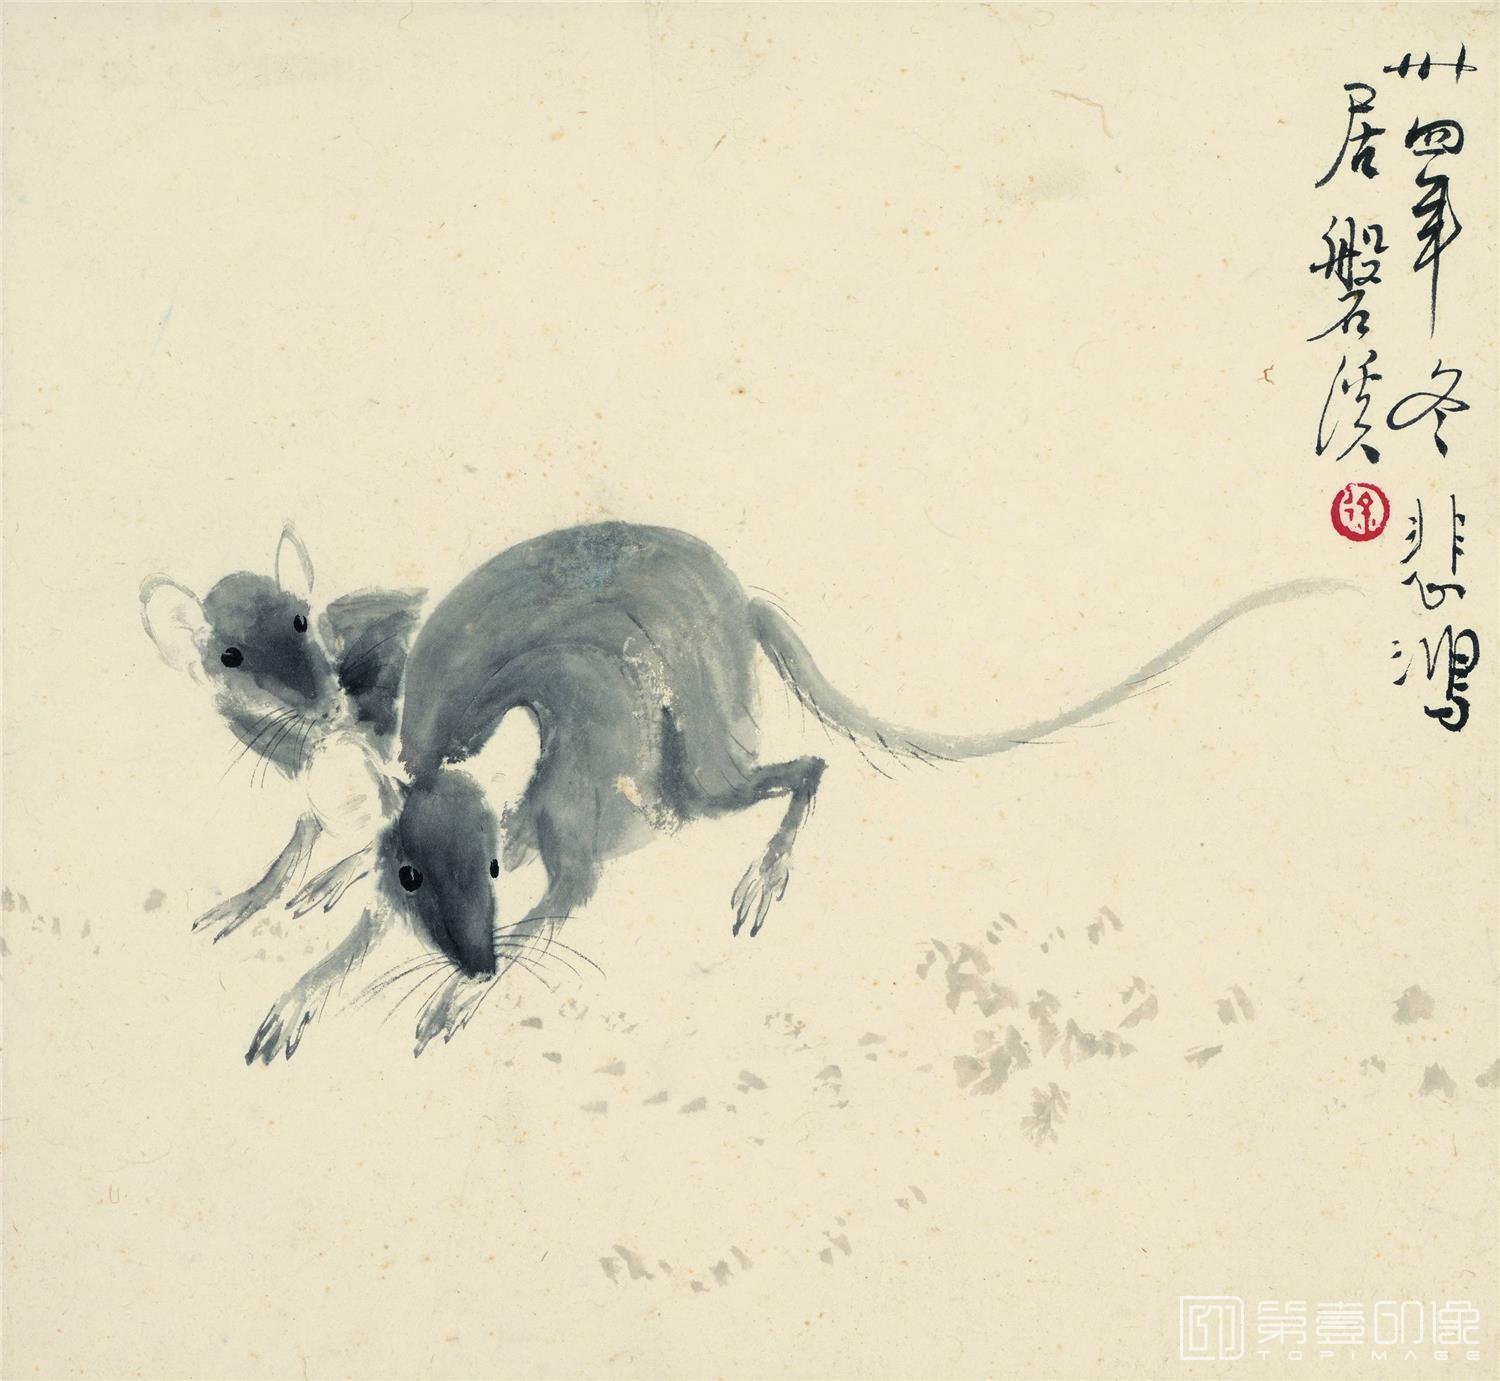 卅四年冬悲鸿
居磐溪
徐
第壹印像
TOPIMAGE